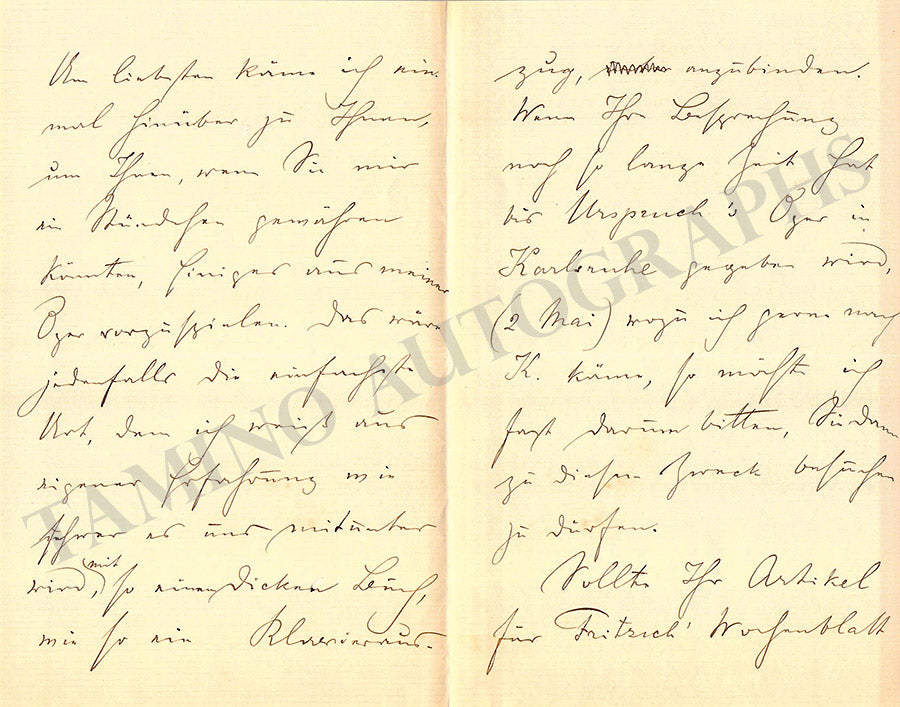 Am liebsten käme ich ein-
mal hinüber zu Ihnen,
um Ihnen, wenn Sie mir
ein Stündchen gewähren
könnten, Einiges aus meiner
Oper vorzuspielen. Das wäre
jedenfalls die einfachste
Art, denn ich weiß aus
eigener Erfahrung wie
schwer es uns mitunter
wird, mit so einem dicken Buch,
wie so ein Klavieraus-
zug, anzubinden.
Wenn Ihre Besprechung
noch so lange Zeit hat
bis Urspruch's Oper in
Karlsruhe gegeben wird,
(2 Mai) wozu ich gerne nach
K. käme, so möchte ich
fast darum bitten, Sie dann
zu diesem Zweck besuchen
zu dürfen.
Sollte Ihr Artikel
für Fritzsch' Wochenblatt
TAMINO AUTOGRAPHS